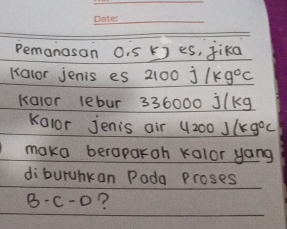 Date:
Pemanasan 0.5 KJ es, jika
Kalor jenis es 2100 j/kg°c
Kalor lebur 336000 j/kg
Kalor jenis air 4200 J/kg°c
maka berapakah kalor yang
diburuhkan Pada Proses
B-C-D?